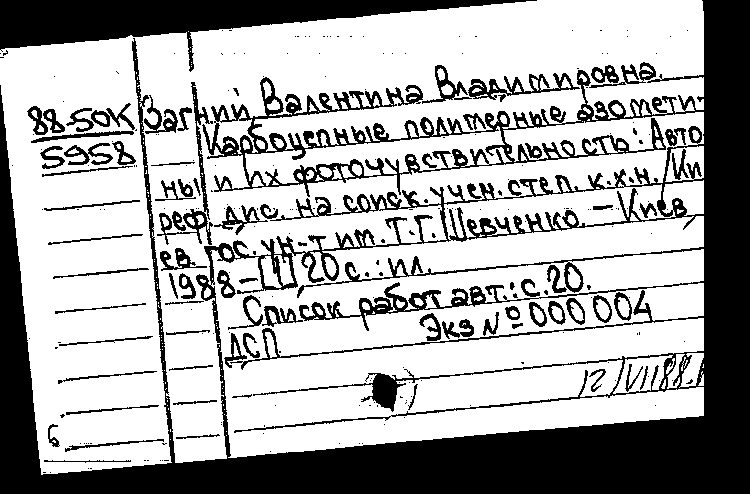 88-50К Загний Валентина Владимировна.
5958 Карбоцепные полимерные азомети-
ны и их фоточувствительность: Авто
реф. дис. на соиск. учен. степ. к.х.н. /Ки
ев. гос. ун-т им. Т.Г. Шевченко. – Киев,
1988. – [1], 20 с. : ил.
Список работ авт.: с. 20.
ДСП Экз № 000 004
12/VII88.
6